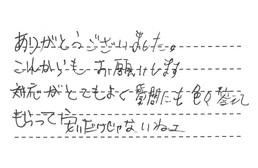 ありがとうございました。
これからもお願いします
対応がとてもよく質問にも色々答えて
もらって
安いだけじゃないねェ